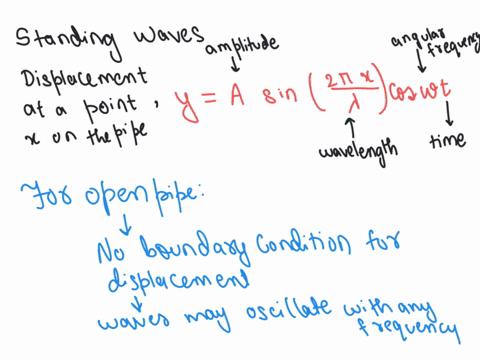 Standing Waves
amplitude
angular
frequency
Displacement
at a point ,
x on the pipe
y = A sin (2π x / λ) cos ωt
wavelength
time
For open pipe:
No boundary condition for
displacement
waves may oscillate with any
frequency